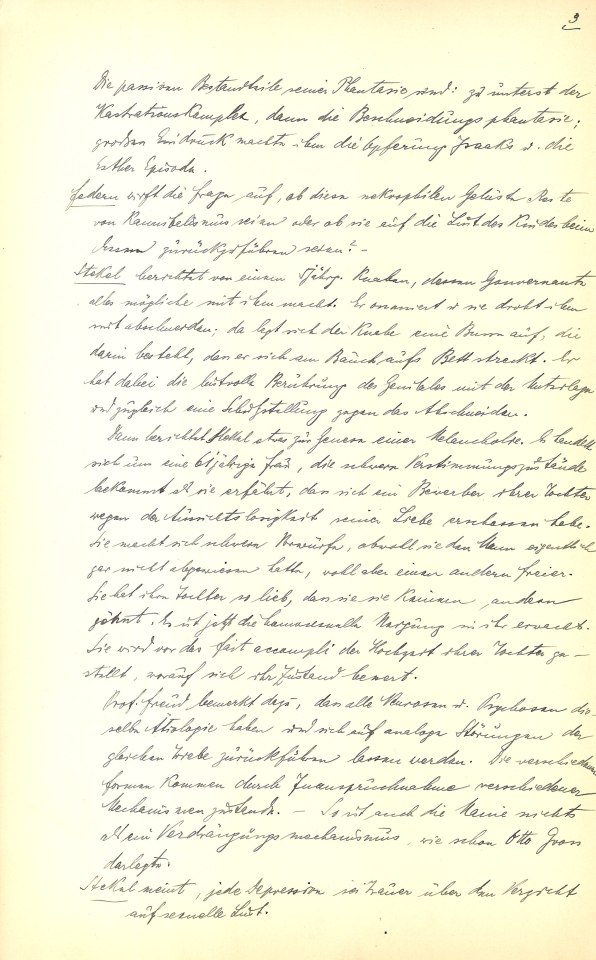 3
Die passiven Bestandteile seiner Phantasie sind: zu unterst der
Kastrationskomplex, dann die Beschneidungsphantasie;
großen Eindruck machte ihm die Opferung Isaaks u. die
Esther Episode.
Federn wirft die Frage auf, ob diese nekrophilen Gelüste Reste
von Kannibalismus seien oder ob sie auf die Lust des Kindes beim
Essen zurückzuführen seien? –
Stekel berichtet von einem jähr. Knaben, dessen Gouvernante
alles mögliche mit ihm macht. Er onaniert u sie droht ihm
mit abschneiden; da legt sich der Knabe eine Busse auf, die
darin besteht, dass er sich am Bauch aufs Bett streckt. Er
hat dabei die lustvolle Berührung des Genitales mit der Unterlage
und zugleich eine Schutzstellung gegen das Abschneiden.
Dann berichtet Stekel etwas zur Genese einer Melancholie. Es handelt
sich um eine 61jährige Frau, die schwere Verstimmungszustände
bekommt als sie erfährt, dass sich ein Bewerber ihrer Tochter
wegen der Aussichtslosigkeit seiner Liebe erschossen habe.
Sie macht sich schwere Vorwürfe, obwohl sie den Mann eigentlich
gar nicht abgewiesen hatte, wohl aber einen andern Freier.
Sie hat ihre Tochter so lieb, dass sie sie keinem andern
gönnt. Es ist jetzt die homosexuelle Neigung in ihr erwacht.
Sie wird vor das fait accompli der Hochzeit ihrer Tochter ge-
stellt, worauf sich ihr Zustand bessert.
Prof. Freud bemerkt dazu, dass alle Neurosen u. Psychosen die-
selbe Ätiologie haben und sich auf analoge Störungen der
gleichen Triebe zurückführen lassen werden. Die verschiedenen
Formen kommen durch Inanspruchnahme verschiedener
Mechanismen zustande. – So ist auch die Manie nichts
als ein Verdrängungsmechanismus, wie schon Otto Gross
darlegte.
Stekel meint, jede Depression sei Trauer über den Verzicht
auf sexuelle Lust.